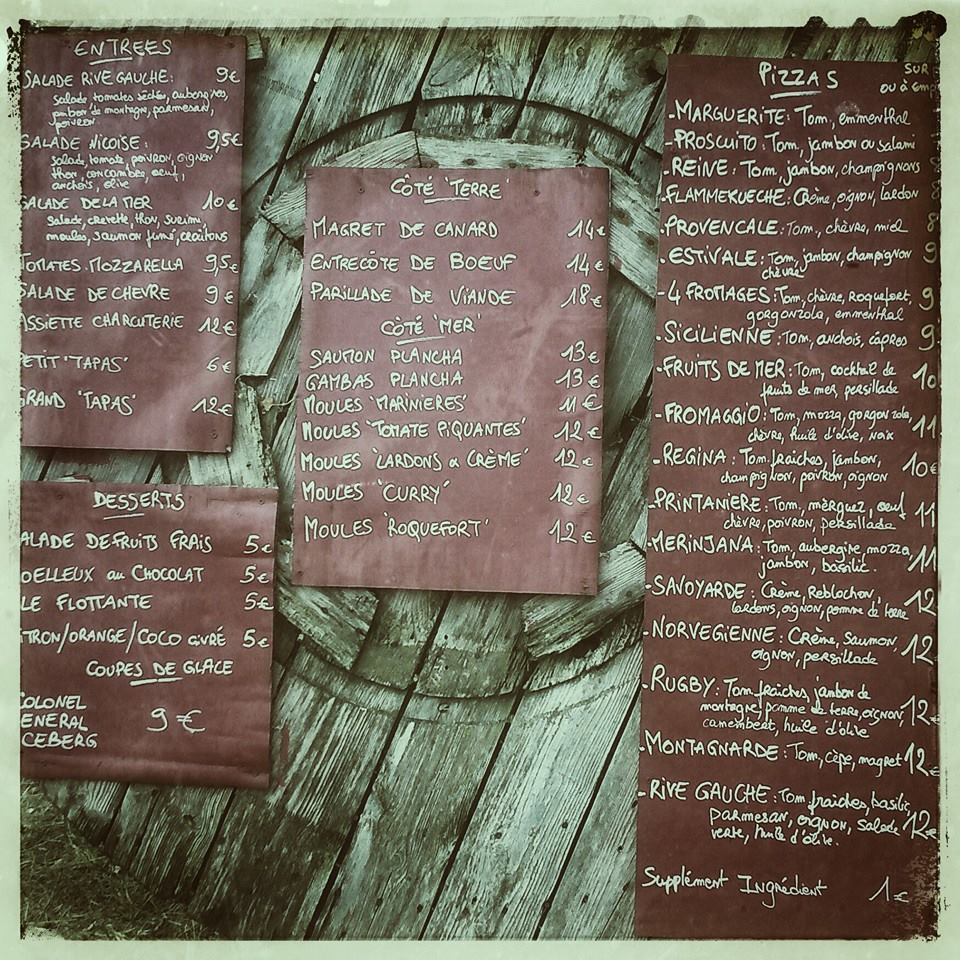 ENTREES
SALADE RIVE GAUCHE: 9€
salade tomates séchées, aubergines,
jambon de montagne, parmesan,
poivron
SALADE NICOISE: 9,5€
salade, tomate, poivron, oignon
thon, concombre, oeuf,
anchois, olive
SALADE DE LA MER 10€
salade, crevette, thon, surimi,
moules, saumon fumé, croûtons
TOMATES MOZZARELLA 9,5€
SALADE DE CHEVRE 9€
ASSIETTE CHARCUTERIE 12€
PETIT 'TAPAS' 6€
GRAND 'TAPAS' 12€
DESSERTS
ALADE DE FRUITS FRAIS 5€
OELLEUX au CHOCOLAT 5€
LE FLOTTANTE 5€
TRON/ORANGE/COCO GIVRÉ 5€
COUPES DE GLACE
COLONEL
ENERAL 9€
CEBERG
CÔTÉ 'TERRE'
MAGRET DE CANARD 14€
ENTRECÔTE DE BOEUF 14€
PARILLADE DE VIANDE 18€
CÔTÉ 'MER'
SAUMON PLANCHA 13€
GAMBAS PLANCHA 13€
MOULES 'MARINIERES' 11€
MOULES 'TOMATE PIQUANTES' 12€
MOULES 'LARDONS & CRÈME' 12€
MOULES 'CURRY' 12€
MOULES 'ROQUEFORT' 12€
PIZZAS SUR
ou à emp
-MARGUERITE: Tom, emmenthal
-PROSCUITO: Tom, jambon ou salami
-REINE: Tom, jambon, champignons
-FLAMMEKUECHE: Crème, oignon, lardon
-PROVENCALE: Tom., chèvre, miel 8
-ESTIVALE: Tom, jambon, champignon 9
chèvre
-4 FROMAGES: Tom, chèvre, Roquefort, 9
gorgonzola, emmenthal
-SICILIENNE: Tom, anchois, câpres 9
-FRUITS DE MER: Tom, cocktail de 10
fruits de mer, persillade
-FROMAGGIO: Tom, mozza, gorgonzola, 11
chèvre, huile d'olive, noix
-REGINA: Tom fraiches, jambon, 10€
champignon, poivron, oignon
-PRINTANIERE: Tom, mèrguez, oeuf 11
chèvre, poivron, persillade
-MERINJANA: Tom, aubergine, mozza, 11
jambon, basilic.
-SAVOYARDE: Crème, Reblochon, 12
lardons, oignon, pomme de terre
-NORVEGIENNE: Crème, saumon 12
oignon, persillade
-RUGBY: Tom fraiches, jambon de
montagne, pomme de terre, oignon 12€
camembert, huile d'olive
-MONTAGNARDE: Tom, cèpe, magret 12€
-RIVE GAUCHE: Tom fraiches, basilic,
parmesan, oignon, salade 12€
verte, huile d'olive.
Supplément Ingrédient 1€